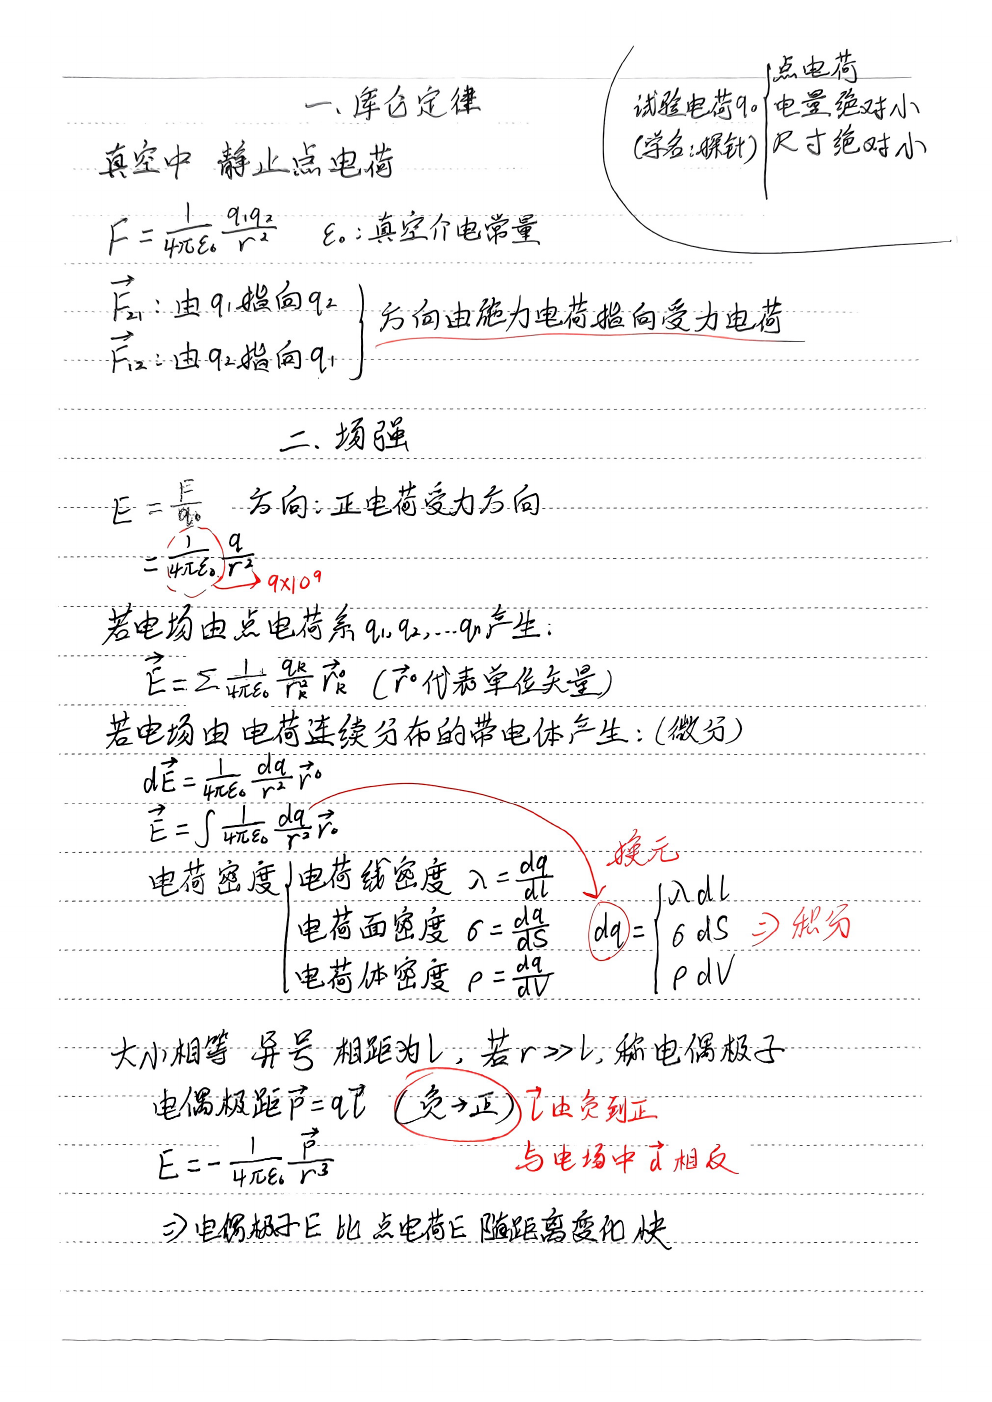 一、库仑定律
真空中 静止点电荷
试验电荷q₀ { 点电荷
电量绝对小
(学名:探针) 尺寸绝对小
F = 1/4πε₀ q₁q₂/r² ε₀:真空介电常量
F⃗₂₁:由q₁指向q₂
F⃗₁₂:由q₂指向q₁
} 方向由施力电荷指向受力电荷
二、场强
E = F/q₀ 方向:正电荷受力方向
= 1/4πε₀ q/r²
→ 9×10⁹
若电场由点电荷系q₁,q₂,…qₙ产生:
E⃗ = Σ 1/4πε₀ q_k/r_k² r⃗_k⁰ (r⃗⁰代表单位矢量)
若电场由电荷连续分布的带电体产生:(微分)
dE⃗ = 1/4πε₀ dq/r² r⃗⁰
E⃗ = ∫ 1/4πε₀ dq/r² r⃗₀
换元
电荷密度 { 电荷线密度 λ = dq/dl
电荷面密度 σ = dq/dS
电荷体密度 ρ = dq/dV
dq = { λdl
σdS
ρdV
⇒ 积分
大小相等 异号 相距为l,若r≫l,称电偶极子
电偶极距P⃗=ql⃗ (负→正) l⃗由负到正
与电场中d⃗相反
E = - 1/4πε₀ P⃗/r³
⇒电偶极子E 比 点电荷E 随距离变化快